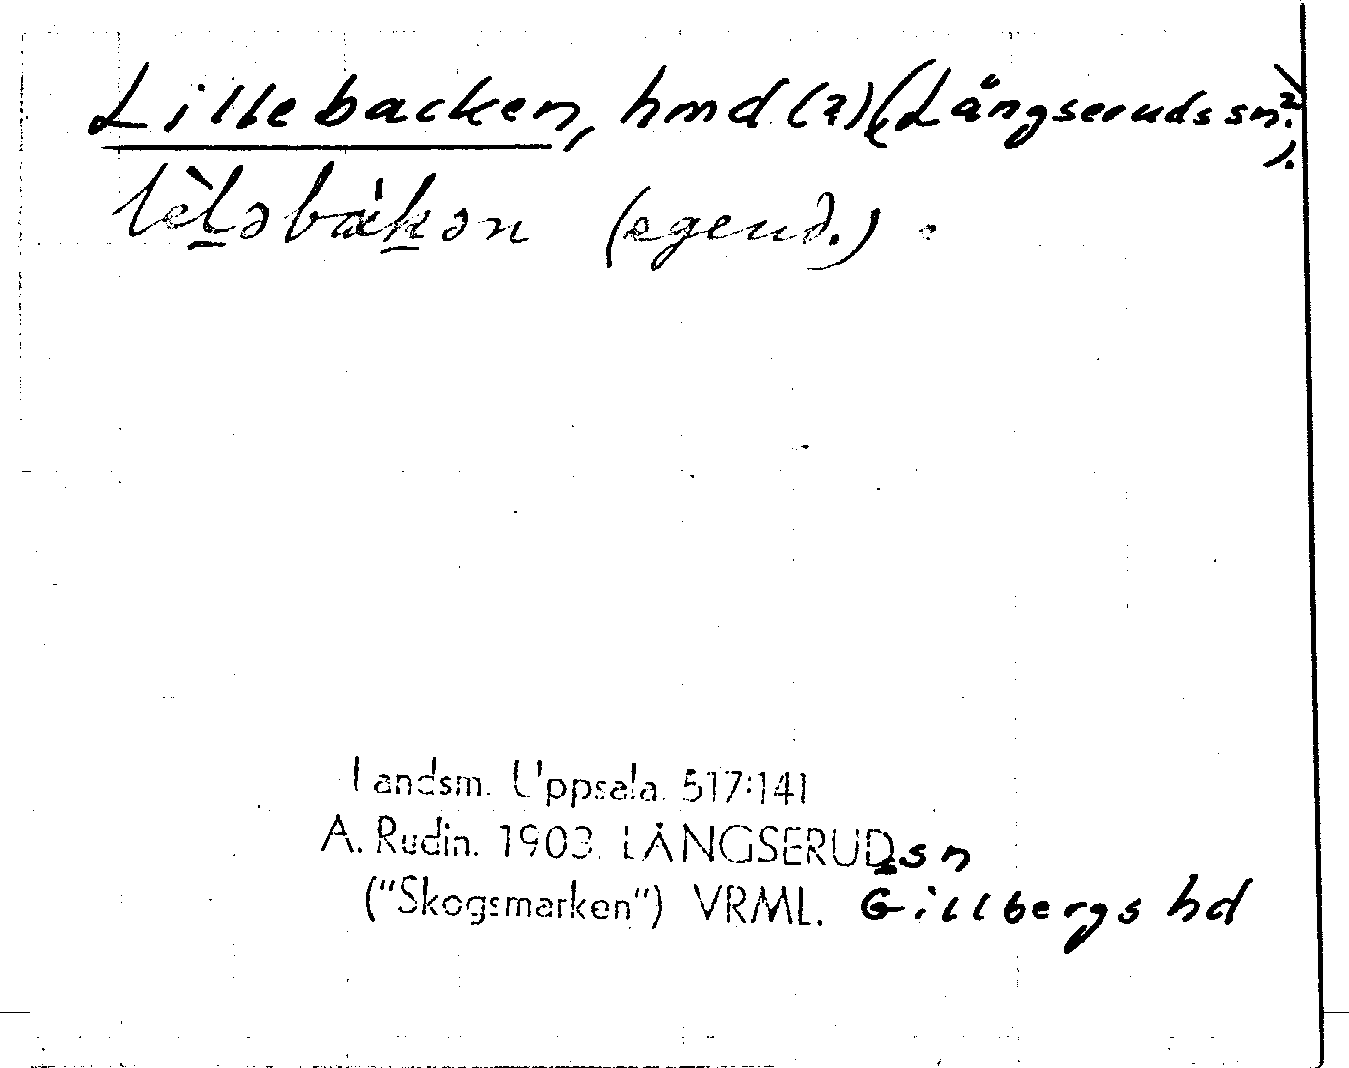 Lillebacken, hmd (?) (Långseruds sn?).
lèləbàkən (egend.).
Landsm. Uppsala 517:141
A. Rudin. 1903. LÅNGSERUDsn
("Skogsmarken") VRML. Gillbergs hd